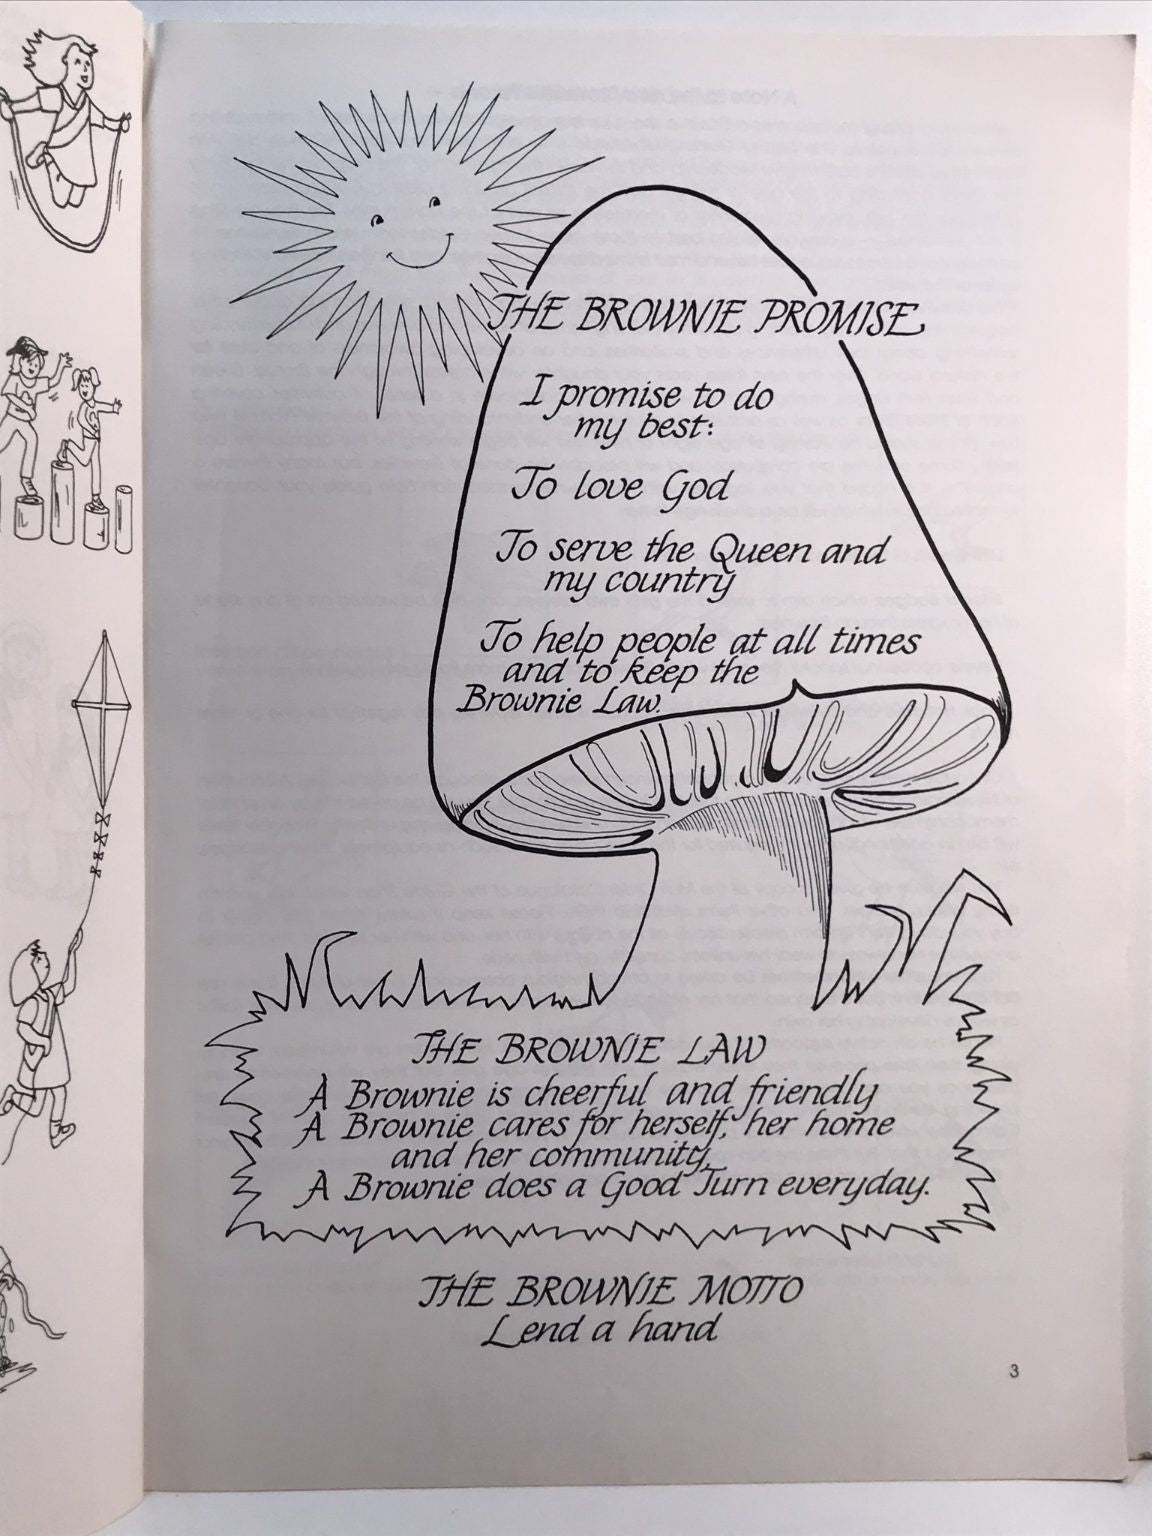 THE BROWNIE PROMISE
I promise to do
my best:
To love God
To serve the Queen and
my country
To help people at all times
and to keep the
Brownie Law.
THE BROWNIE LAW
A Brownie is cheerful and friendly
A Brownie cares for herself, her home
and her community,
A Brownie does a Good Turn everyday.
THE BROWNIE MOTTO
Lend a hand
3